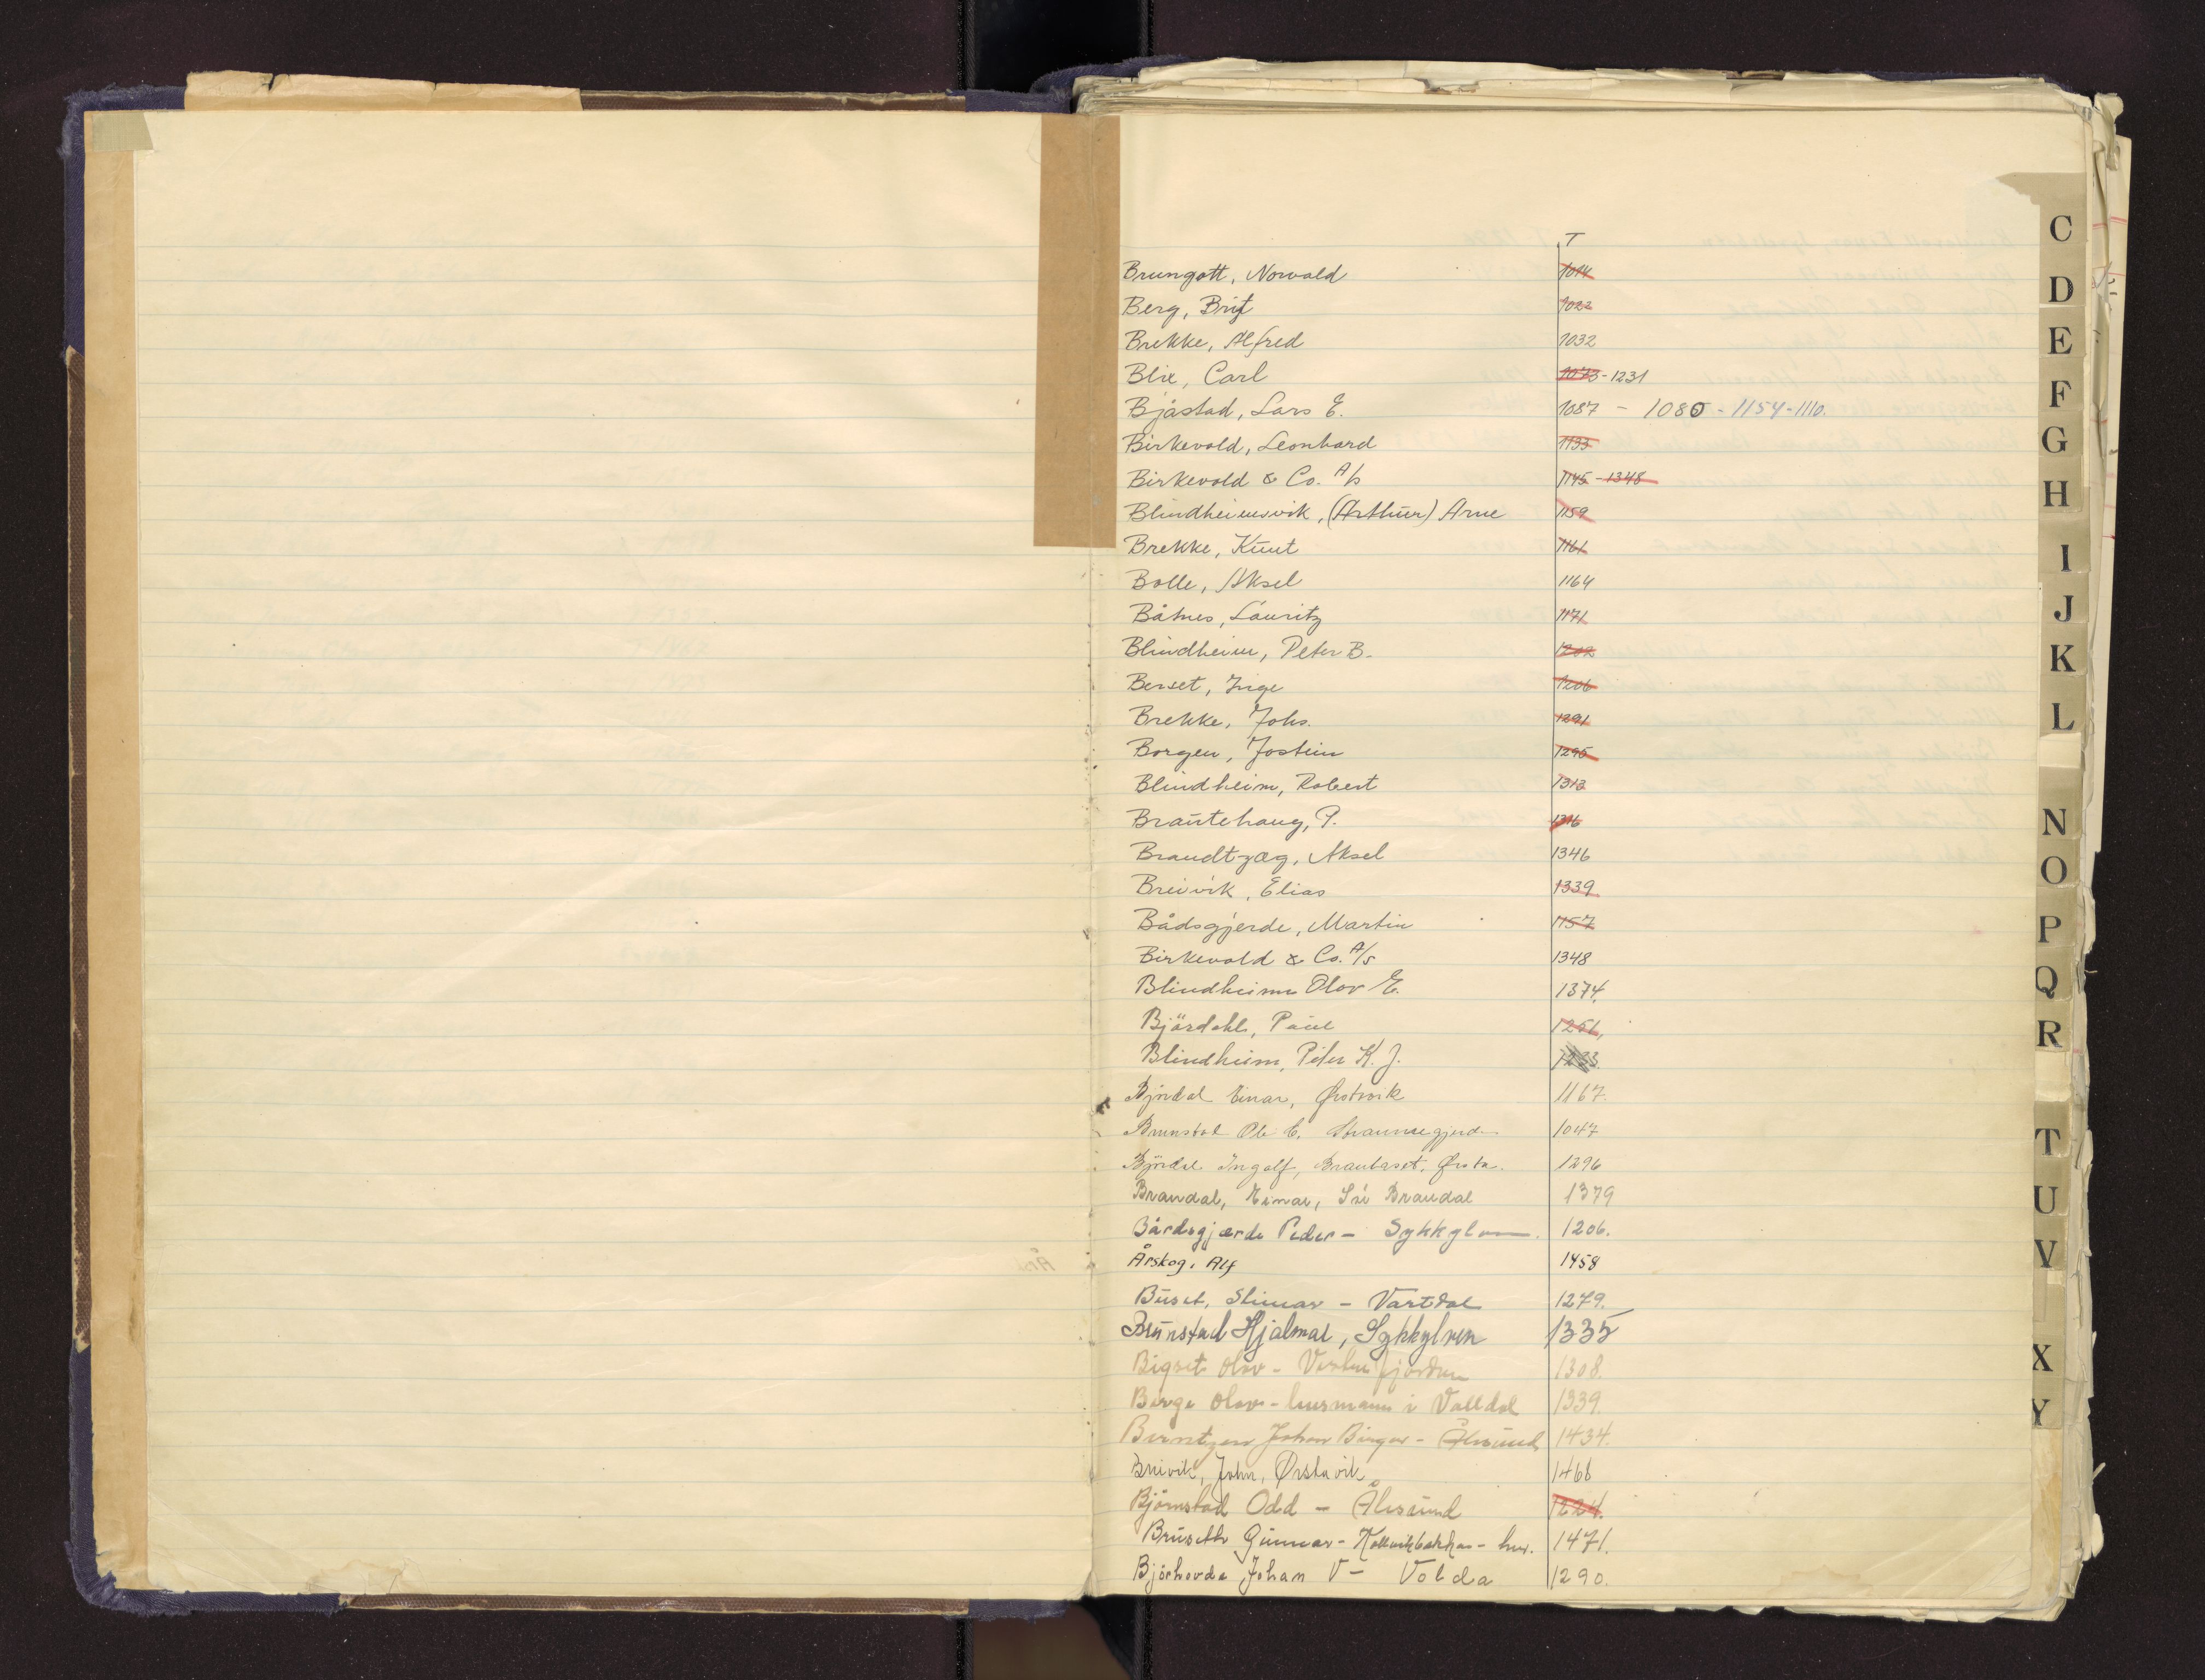 T
Brungott, Norvald 1014
Berg, Brit 1022
Brekke, Alfred 1032
Blix, Carl 1073-1231
Bjåstad, Lars E. 1087 - 1080 - 1154-1110.
Birkevold, Leonhard 1133
Birkevold & Co. A/s 1145-1348
Blindheimsvik, (Arthur) Arne 1159
Brekke, Knut 1161
Bolle, Aksel 1164
Båtnes, Lauritz 1171
Blindheim, Peter B. 1202
Berset, Inge 1206
Brekke, Johs. 1291
Borgen, Jostein 1295
Blindheim, Robert 1313
Brautehaug, P. 1316
Brandtzæg, Aksel 1346
Breivik, Elias 1339
Bådsgjerde, Martin 1157
Birkevold & Co. A/s 1348
Blindheim Olav E. 1374.
Björdahl, Paul 1251.
Blindheim, Peter K. J. 1233.
Bjørdal Einar, Ørstavik 1167.
Brunstad Ole C. Straumsgjerde 1047
Bjørdal Ingolf, Ørsta. 1296
Brandal, Einar, Brandal 1379
Bårdsgjærde Peder - Sykkylven. 1206.
Årskog, Alf 1458
Buset, - Vartdal 1279.
Brunstad Hjalmar, Sykkylven 1335
Bigset Olav - Vartdalsfjorden 1308.
Berge Olav - lensmann i Valldal 1339.
Berntzen Johan Birger - Ålesund 1434.
Breivik, John, Ørstavik 1466
Björnstad Odd - Ålesund 1224.
Bruseth Gunnar - 1471.
Bjørhovde Johan V - Volda 1290.
C
D
E
F
G
H
I
J
K
L
N
O
P
Q
R
T
U
V
X
Y